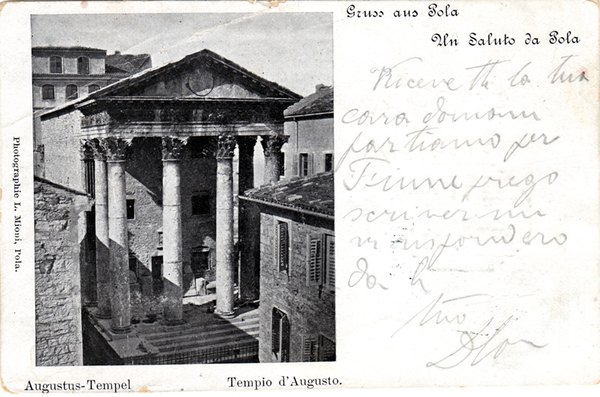 Gruss aus Pola
Un Saluto da Pola
Ricevetti la tua
cara domani
partiamo per
Fiume prego
scrivermi
vi risponderò
da lì
tuo
Photographie L. Mioni, Pola.
Augustus-Tempel
Tempio d'Augusto.